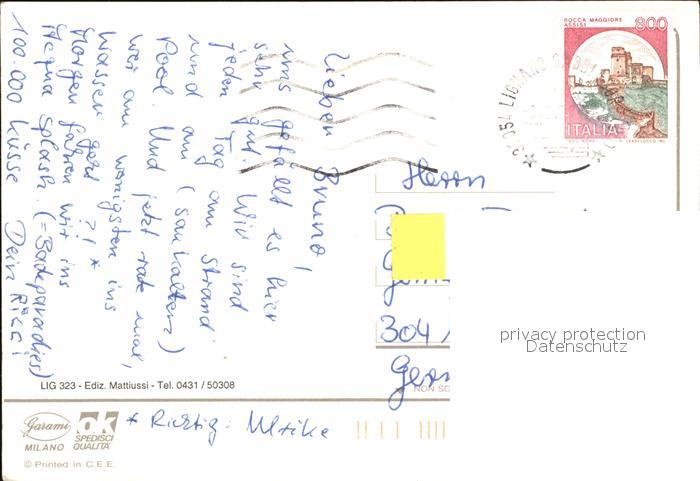 Lieber Bruno!
uns gefällt es hier
sehr gut. Wir sind
jeden Tag am Strand
und am (saukalten)
Pool. Und jetzt rate mal,
wer am wenigsten ins
Wasser geht ?! *
Morgen fahren wir ins
Aqua Splash. (= Badeparadies)
100.000 Küsse Dein
* Richtig: Ulrike
LIG 323 - Ediz. Mattiussi - Tel. 0431 / 50308
Garami
MILANO
ok
SPEDISCI
QUALITÀ
© Printed in C.E.E.
ROCCA MAGGIORE
ASSISI
800
ITALIA
33054 LIGNANO
Herrn
304
Germ
NON SC
privacy protection
Datenschutz